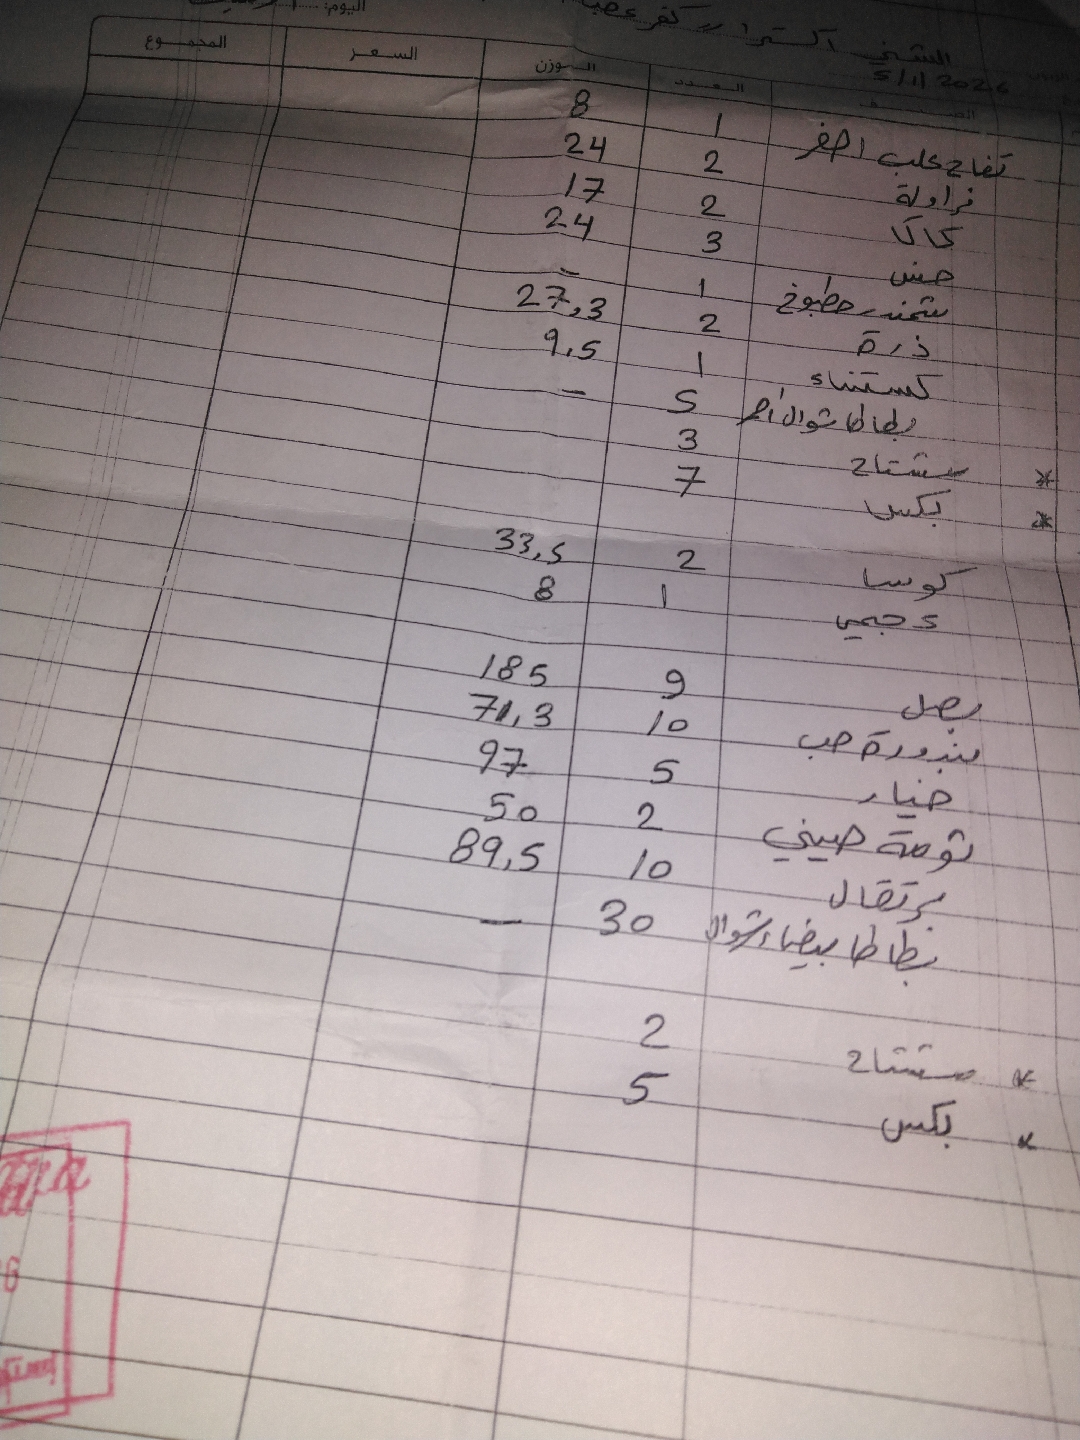 اليوم:
الشني اكسترا - كفر عصب
5/1/2026
الصنف العدد الوزن السعر المجموع
تفاح علب اصفر 1 8
فراولة 2 24
كاكا 2 17
خس 3 24
شمندر مطبوخ 1 -
ذرة 2 27,3
كستناء 1 9,5
بطاطا شوال أحمر 5 -
* مشتاح 3
* بكس 7
كوسا 2 33,5
عجمي 1 8
بصل 9 185
بندورة حب 10 71,3
خيار 5 97
ثومة صيني 2 50
برتقال 10 89,5
بطاطا بيضاء شوال 30 -
* مشتاح 2
* بكس 5